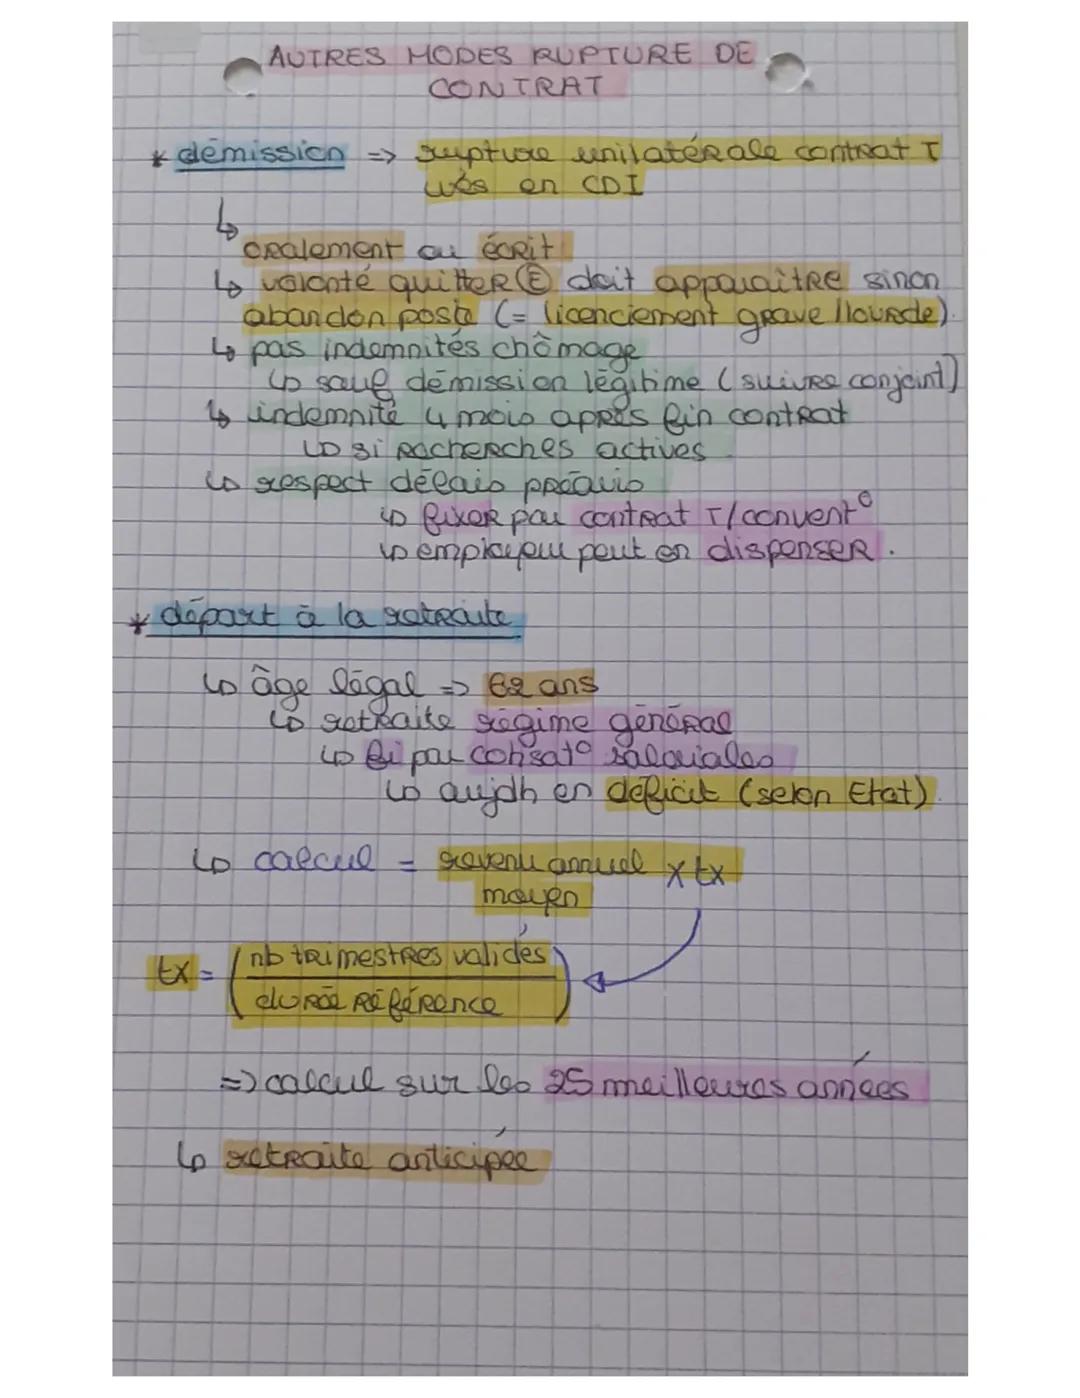 AUTRES MODES RUPTURE DE
CONTRAT
* démission => rupture unilatérale contrat T
en CDI
↳ oralement ou écrit
↳ volonté quitter Ⓔ doit apparaître sinon
abandon poste (= licenciement grave/lourde).
↳ pas indemnités chômage
↳ sauf démission légitime (suivre conjoint)
↳ indemnité 4 mois après fin contrat
↳ si recherches actives.
↳ respect délais préavis
↳ fixer par contrat T/convent°
↳ employeur peut en dispenser.
* départ à la retraite
↳ âge légal => 62 ans
↳ retraite régime général
↳ fi par cotisat° salariales
↳ aujdh en déficit (selon Etat).
↳ calcul = revenu annuel x tx
moyen
tx = (nb trimestres validés
durée référence)
=> calcul sur les 25 meilleures années
↳ retraite anticipée